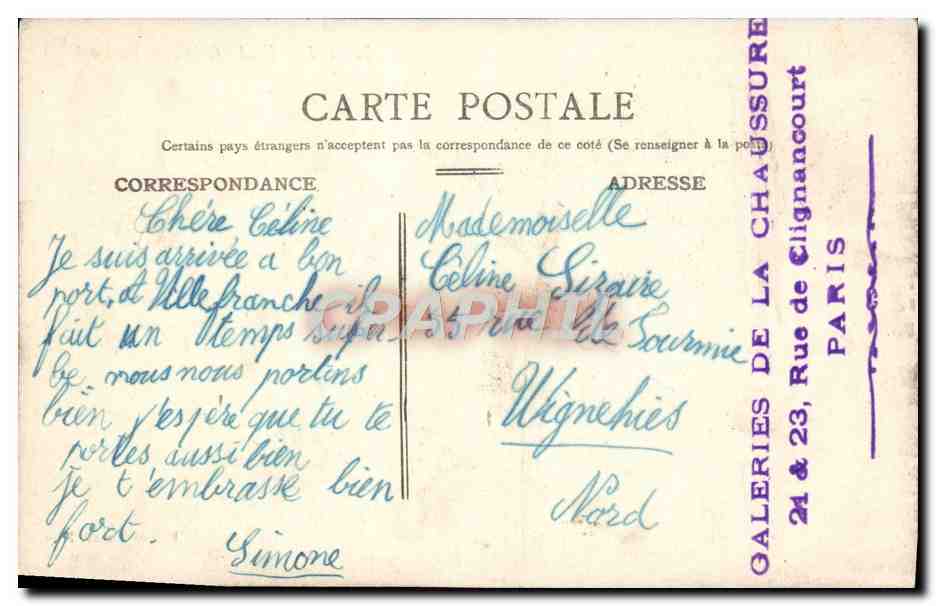 CARTE POSTALE
Certains pays étrangers n'acceptent pas la correspondance de ce coté (Se renseigner à la poste)
CORRESPONDANCE
Chére Céline
Je suis arrivée a bon
port, at Villefranche il
fait un temps super
be. nous nous portins
bien j'espère que tu te
portes aussi bien
je t'embrasse bien
fort.
Simone
ADRESSE
Mademoiselle
Céline Liraire
55 rue de Fourmie
Wignehies
Nord
GALERIES DE LA CHAUSSURE
21 & 23, Rue de Clignancourt
PARIS
CPAPHIL